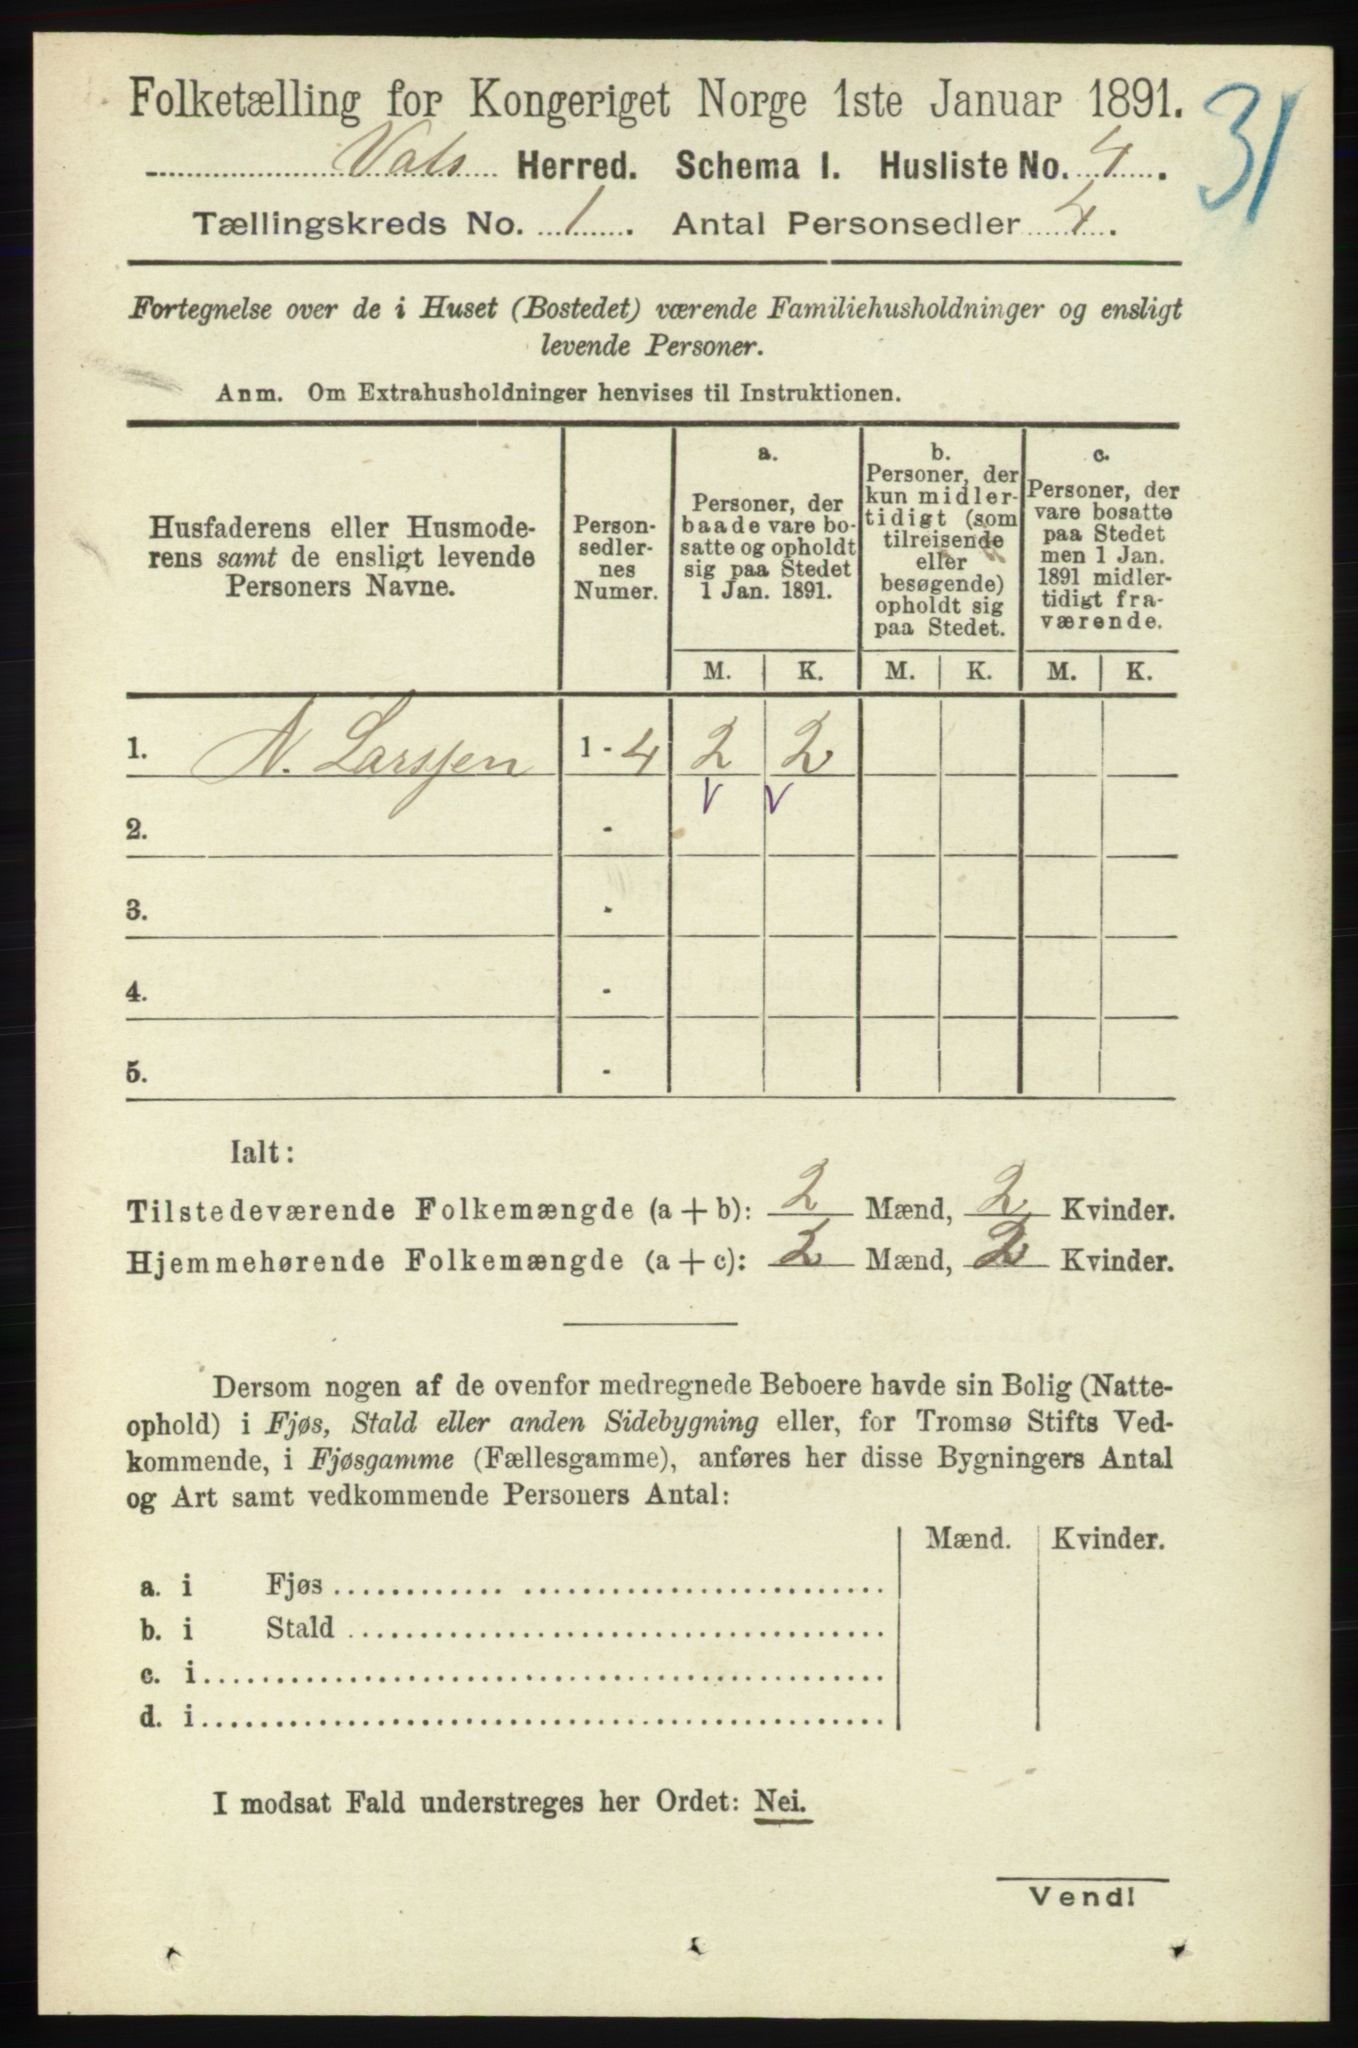 Folketælling for Kongeriget Norge 1ste Januar 1891.
31
Vats Herred. Schema I. Husliste No. 4.
Tællingskreds No. 1. Antal Personsedler 4.
Fortegnelse over de i Huset (Bostedet) værende Familiehusholdninger og ensligt
levende Personer.
Anm. Om Extrahusholdninger henvises til Instruktionen.
Husfaderens eller Husmode-
rens samt de ensligt levende
Personers Navne.
Person-
sedler-
nes
Numer.
a.
Personer, der
baade vare bo-
satte og opholdt
sig paa Stedet
1 Jan. 1891.
b.
Personer, der
kun midler-
tidigt (som
tilreisende
eller
besøgende)
opholdt sig
paa Stedet.
c.
Personer, der
vare bosatte
paa Stedet
men 1 Jan.
1891 midler-
tidigt fra-
værende.
M. K. M. K. M. K.
1. N. Larssen 1 - 4 2 2
2. -
3. -
4. -
5. -
Ialt:
Tilstedeværende Folkemængde (a + b): 2 Mænd, 2 Kvinder.
Hjemmehørende Folkemængde (a + c): 2 Mænd, 2 Kvinder.
Dersom nogen af de ovenfor medregnede Beboere havde sin Bolig (Natte-
ophold) i Fjøs, Stald eller anden Sidebygning eller, for Tromsø Stifts Ved-
kommende, i Fjøsgamme (Fællesgamme), anføres her disse Bygningers Antal
og Art samt vedkommende Personers Antal:
Mænd. Kvinder.
a. i Fjøs
b. i Stald
c. i
d. i
I modsat Fald understreges her Ordet: Nei.
Vend!